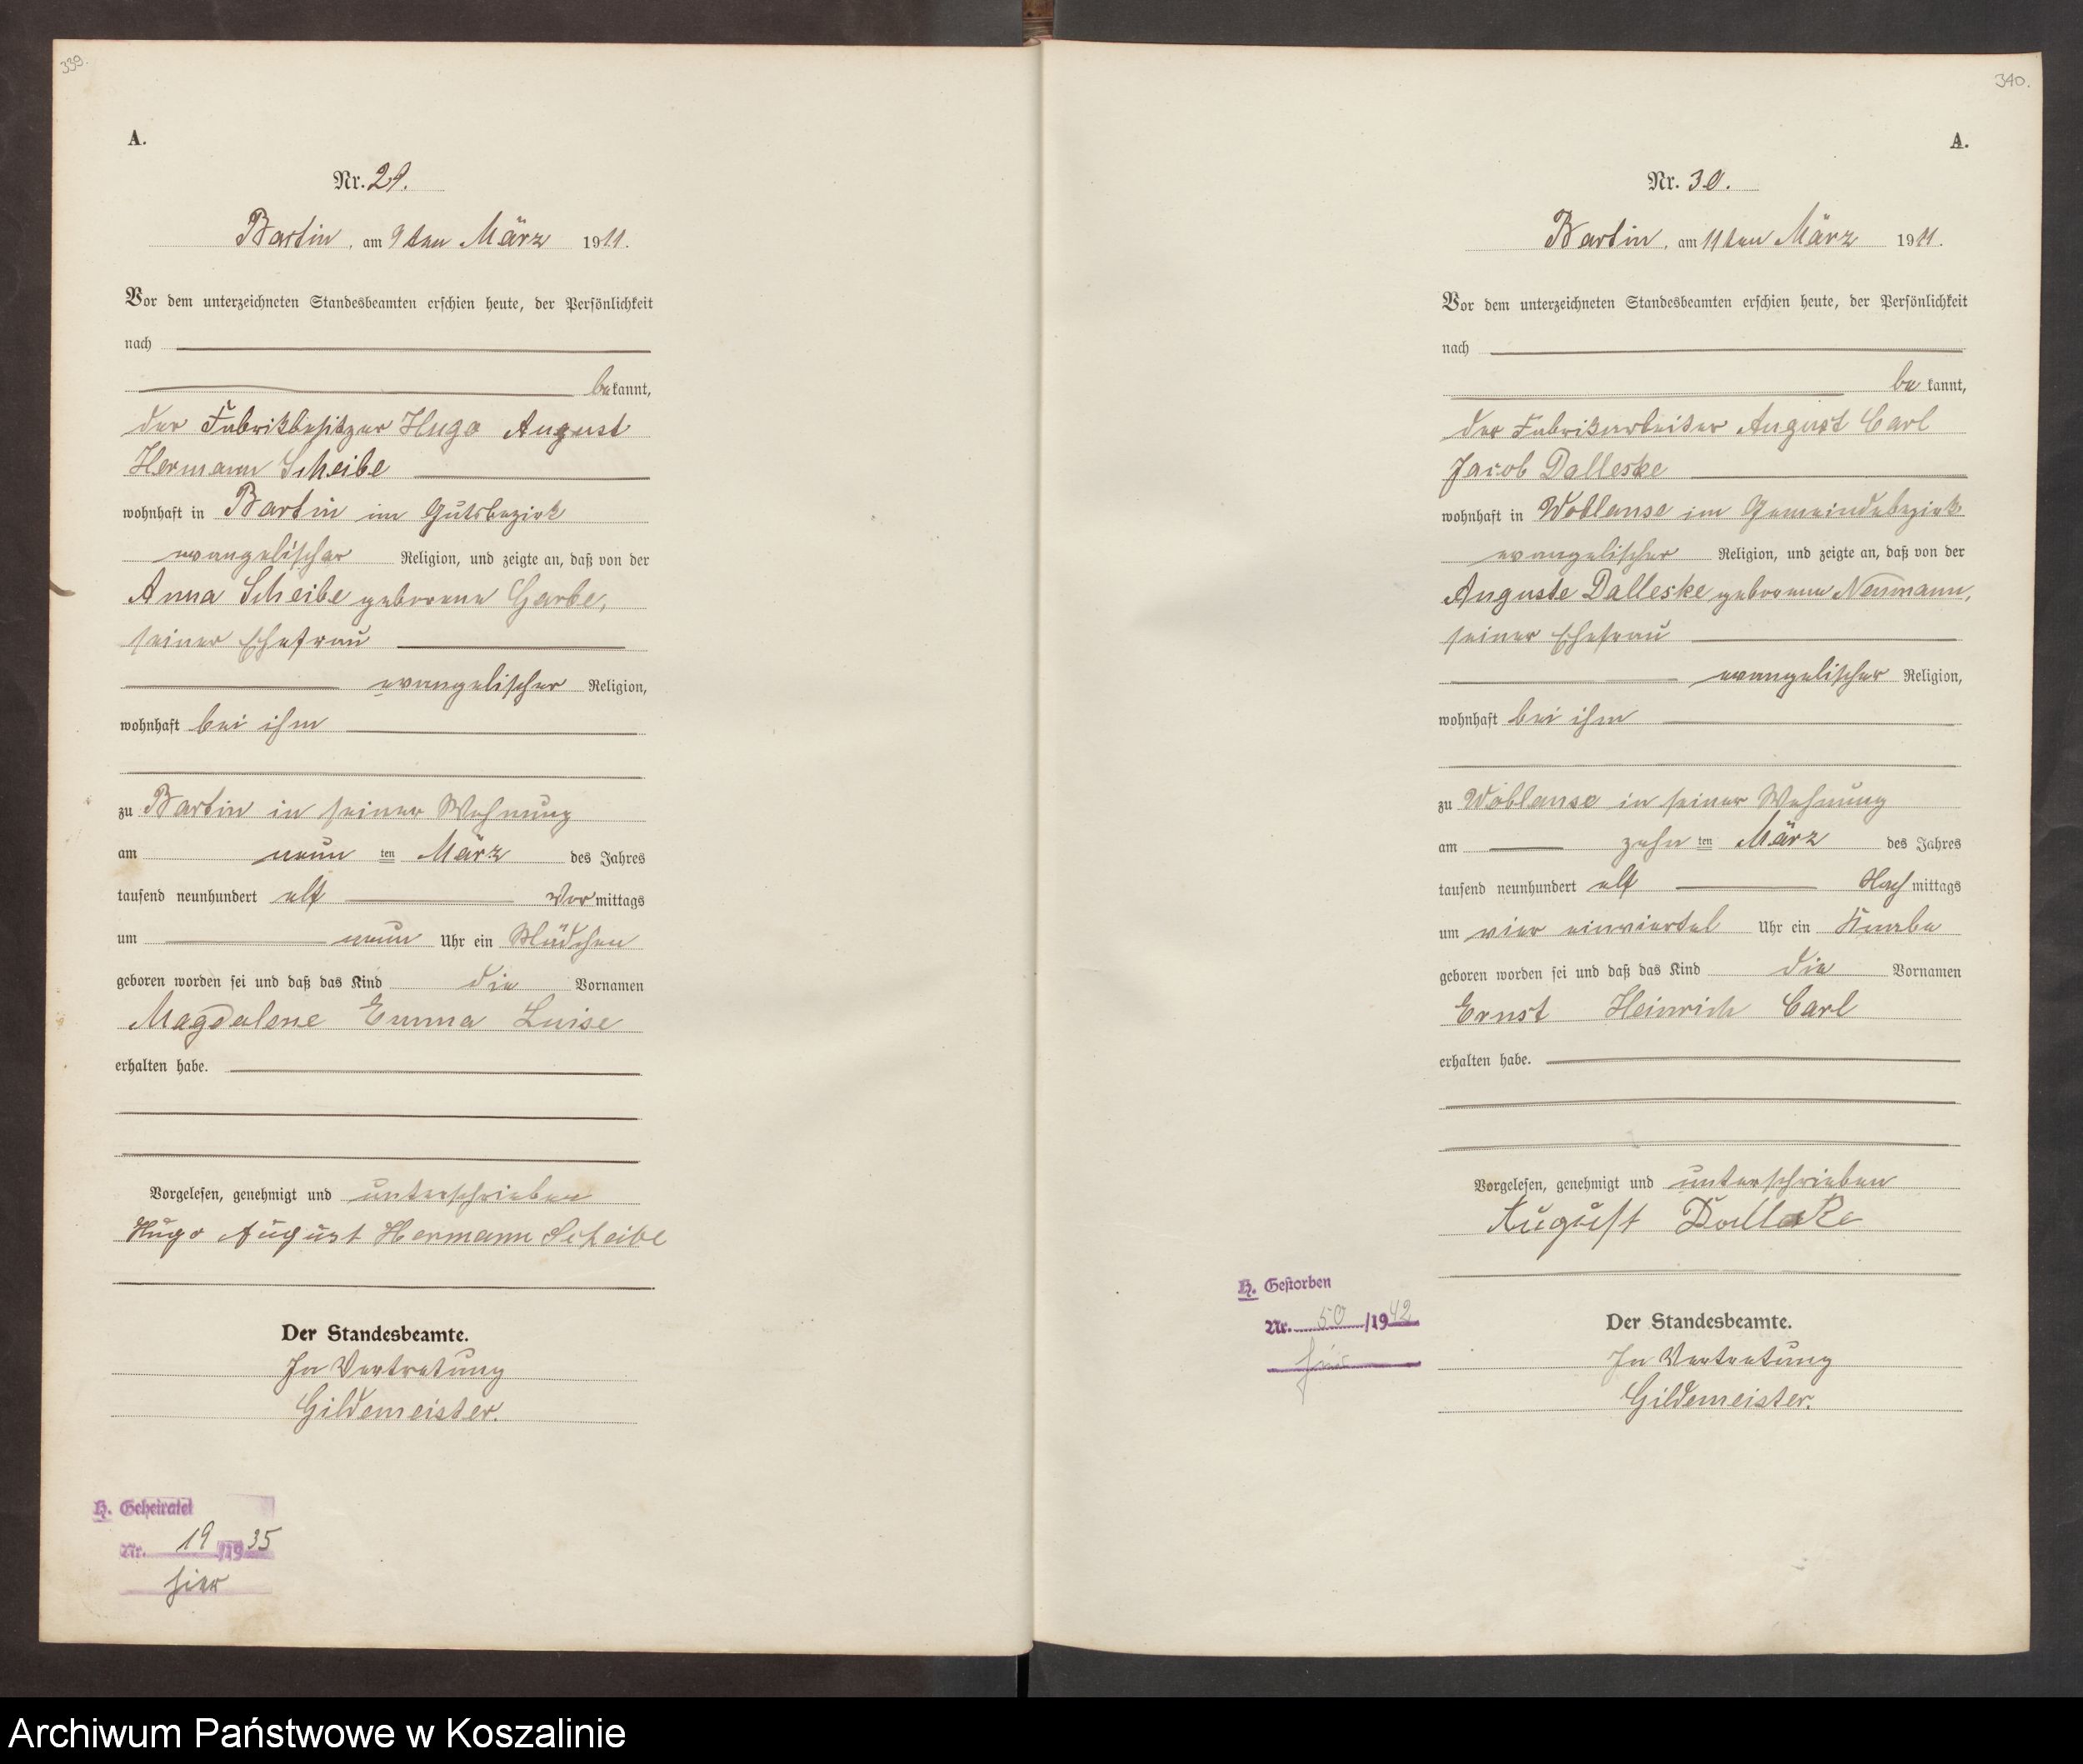 339.
A.
Nr. 29.
Bartin, am 9ten März 1911.
Vor dem unterzeichneten Standesbeamten erschien heute, der Persönlichkeit
nach
bekannt,
der Fabrikbesitzer Hugo August
Hermann Scheibe
wohnhaft in Bartin im Gutsbezirk
evangelischer Religion, und zeigte an, daß von der
Anna Scheibe geborene Garbe,
seiner Ehefrau
evangelischer Religion,
wohnhaft bei ihm
zu Bartin in seiner Wohnung
am neun ten März des Jahres
tausend neunhundert elf Vormittags
um neun Uhr ein Mädchen
geboren worden sei und daß das Kind die Vornamen
Magdalene Emma Luise
erhalten habe.
Vorgelesen, genehmigt und unterschrieben
Hugo August Hermann Scheibe
Der Standesbeamte.
In Vertretung
Gildemeister.
H. Geheiratet
Nr. 19 /1935
hier
340.
A.
Nr. 30.
Bartin, am 11ten März 1911.
Vor dem unterzeichneten Standesbeamten erschien heute, der Persönlichkeit
nach
bekannt,
der Fabrikarbeiter August Carl
Jacob Dalleske
wohnhaft in Woblanse im Gemeindebezirk
evangelischer Religion, und zeigte an, daß von der
Auguste Dalleske geborene Neumann,
seiner Ehefrau
evangelischer Religion,
wohnhaft bei ihm
zu Woblanse in seiner Wohnung
am zehn ten März des Jahres
tausend neunhundert elf Nachmittags
um vier einviertel Uhr ein Knabe
geboren worden sei und daß das Kind die Vornamen
Ernst Heinrich Carl
erhalten habe.
Vorgelesen, genehmigt und unterschrieben
August Dalleske
Der Standesbeamte.
In Vertretung
Gildemeister.
H. Gestorben
Nr. 50 /1942
hier
Archiwum Państwowe w Koszalinie